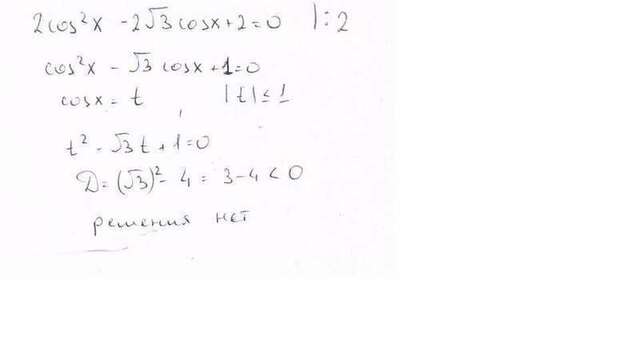 2cos²x - 2√3 cosx + 2 = 0 |:2
cos²x - √3 cosx + 1 = 0
cosx = t, |t| ≤ 1
t² - √3t + 1 = 0
D = (√3)² - 4 = 3 - 4 < 0
решения нет